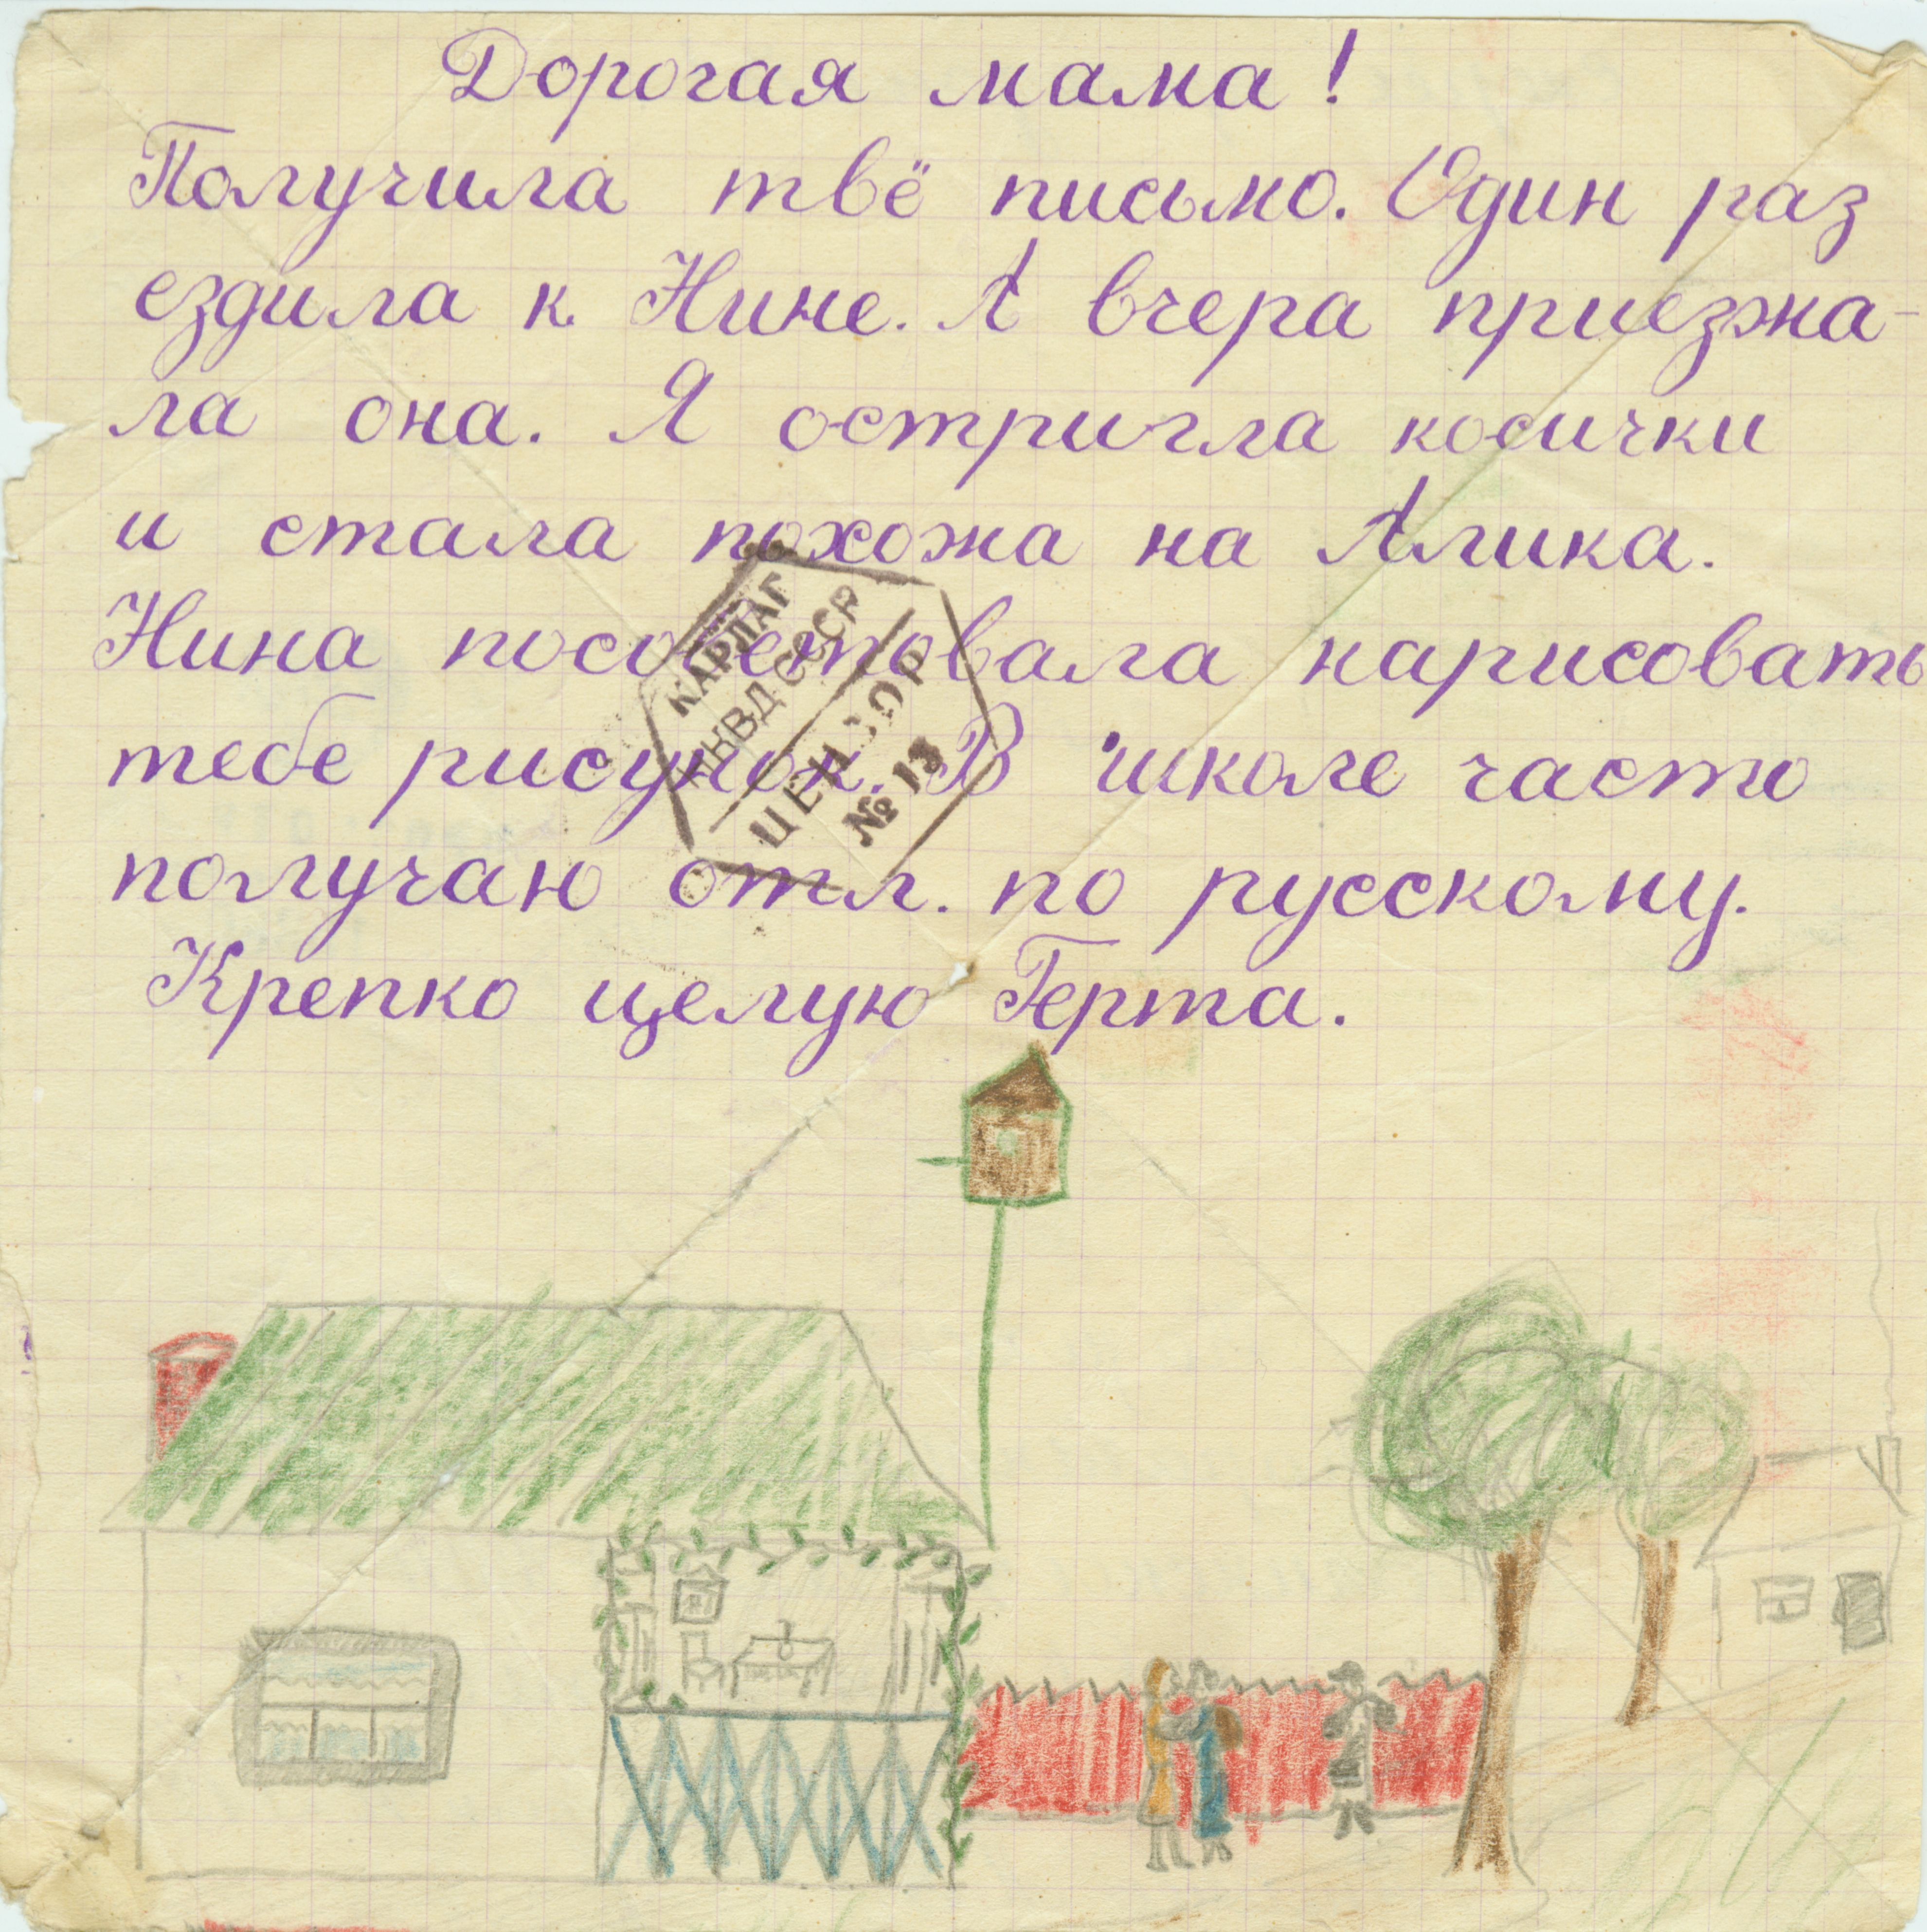 Дорогая мама!
Получила твё письмо. Один раз
ездила к Нине. А вчера приезжа-
ла она. Я остригла косички
и стала похожа на Алика.
Нина посоветовала нарисовать
тебе рисунок. В школе часто
получаю отл. по русскому.
Крепко целую Герта.
КАРЛАГ
НКВД СССР
ЦЕНЗОР
№ 18